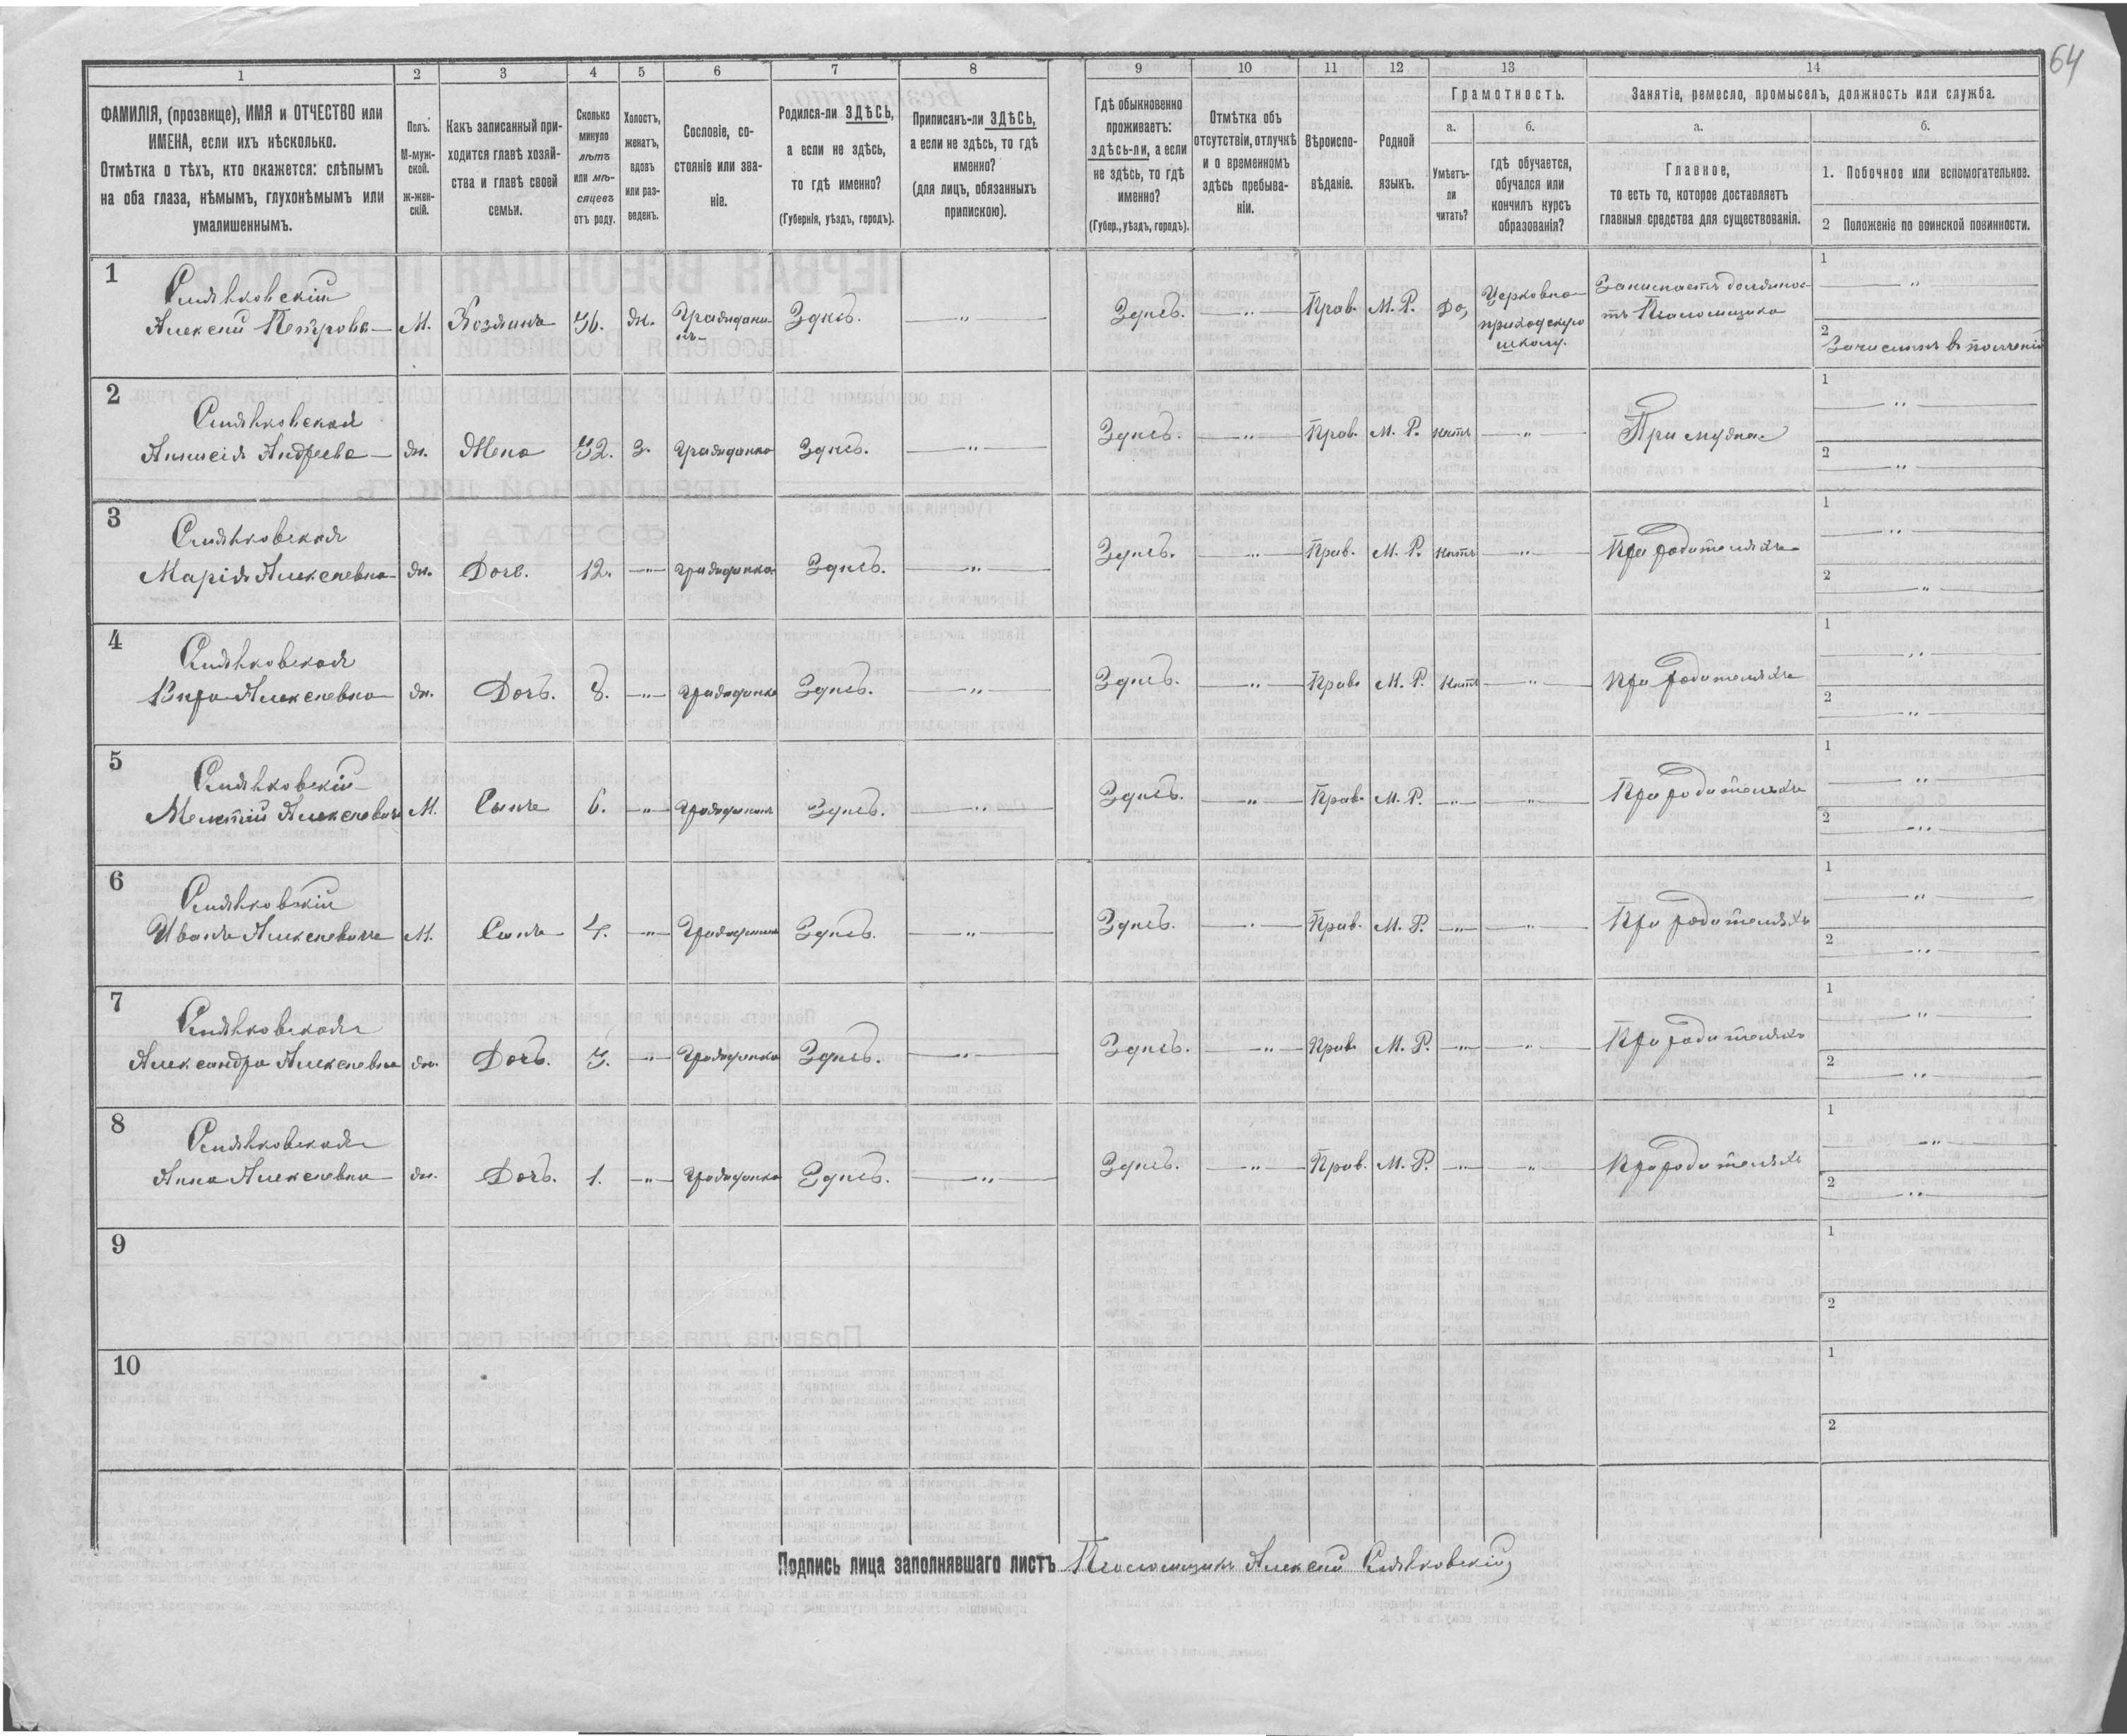 64
1 2 3 4 5 6 7 8 9 10 11 12 13 14
ФАМИЛІЯ, (прозвище), ИМЯ и ОТЧЕСТВО или
ИМЕНА, если ихъ нѣсколько.
Отмѣтка о тѣхъ, кто окажется: слѣпымъ
на оба глаза, нѣмымъ, глухонѣмымъ или
умалишеннымъ.
Полъ.
М-муж-
ской.
ж-жен-
скій.
Какъ записанный при-
ходится главѣ хозяй-
ства и главѣ своей
семьи.
Сколько
минуло
лѣтъ
или мѣ-
сяцевъ
отъ роду.
Холостъ,
женатъ,
вдовъ
или раз-
веденъ.
Сословіе, со-
стояніе или зва-
ніе.
Родился-ли ЗДѢСЬ,
а если не здѣсь,
то гдѣ именно?
(Губернія, уѣздъ, городъ).
Приписанъ-ли ЗДѢСЬ,
а если не здѣсь, то гдѣ
именно?
(для лицъ, обязанныхъ
припискою).
Гдѣ обыкновенно
проживаетъ:
здѣсь-ли, а если
не здѣсь, то гдѣ
именно?
(Губер., уѣздъ, городъ).
Отмѣтка объ
отсутствіи, отлучкѣ
и о временномъ
здѣсь пребыва-
ніи.
Вѣроиспо-
вѣданіе.
Родной
языкъ.
Грамотность.
а.
Умѣетъ-
ли
читать?
б.
гдѣ обучается,
обучался или
кончилъ курсъ
образованія?
Занятіе, ремесло, промыселъ, должность или служба.
а.
Главное,
то есть то, которое доставляетъ
главныя средства для существованія.
б.
1. Побочное или вспомогательное.
2 Положеніе по воинской повинности.
1
Алексѣй Петровъ М. Хозяинъ 36. ж. Гражданинъ Здѣсь. — " —
Здѣсь. — " — Прав. М. Р. Да,
Церковно-
приходскую
школу.
Занимаетъ должнос-
ть Псаломщика
1 — " —
2 Зачисленъ въ
2
Андреева ж. Жена 32. з. Гражданка Здѣсь. — " —
Здѣсь. — " — Прав. М. Р. Нѣтъ — " — При мужѣ
1 — " —
2 — " —
3
Марія Алексѣевна ж. Дочь. 12. — " — гражданка Здѣсь. — " —
Здѣсь. — " — Прав. М. Р. Нѣтъ — " — При родителяхъ
1 — " —
2 — " —
4
Вѣра Алексѣевна ж. Дочь. 8. — " — гражданка Здѣсь. — " —
Здѣсь. — " — Прав. М. Р. Нѣтъ — " — При родителяхъ
1 — " —
2 — " —
5
Алексѣевичъ М. Сынъ 6. — " — гражданинъ Здѣсь. — " —
Здѣсь. — " — Прав. М. Р. — " — — " — При родителяхъ
1 — " —
2 — " —
6
Иванъ Алексѣевичъ М. Сынъ 4. — " — Гражданинъ Здѣсь. — " —
Здѣсь. — " — Прав. М. Р. — " — — " — При родителяхъ
1 — " —
2 — " —
7
Александра Алексѣевна ж. Дочь. 3. — " — Гражданка Здѣсь. — " —
Здѣсь. — " — Прав. М. Р. — " — — " — При родителяхъ
1 — " —
2 — " —
8
Анна Алексѣевна ж. Дочь. 1. — " — Гражданка Здѣсь. — " —
Здѣсь. — " — Прав. М. Р. — " — — " — При родителяхъ
1 — " —
2 — " —
9
1
2
10
1
2
Подпись лица заполнявшаго листъ Псаломщикъ Алексѣй